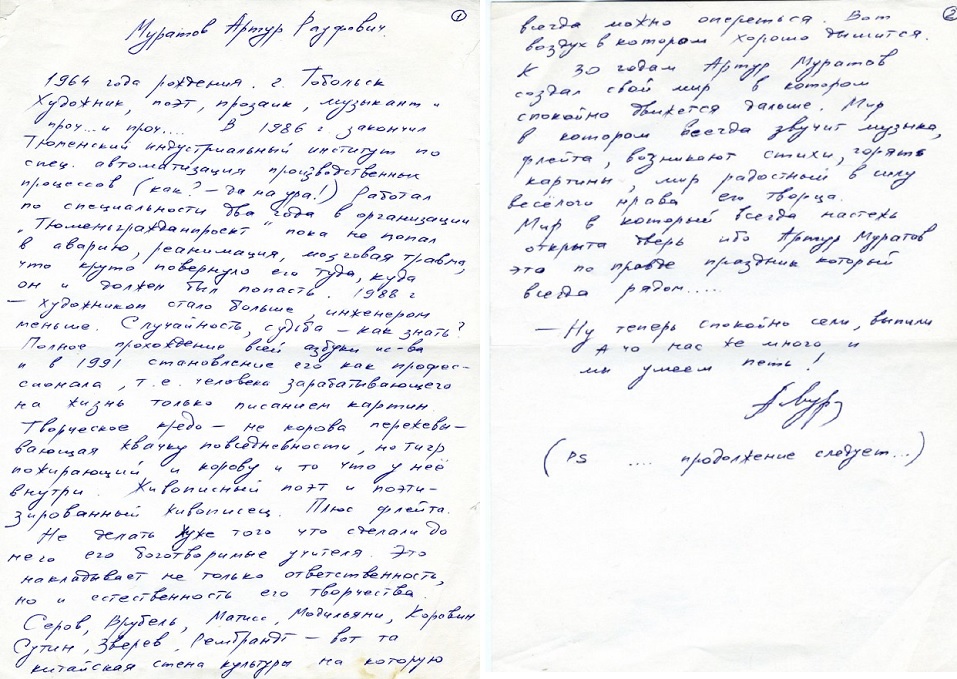 ①
Муратов Артур Рауфович.
1964 года рождения. г. Тобольск
Художник, поэт, прозаик, музыкант и
проч... и проч.... В 1986 г. закончил
Тюменский индустриальный институт по
спец. автоматизация производственных
процессов (как? – да на ура!) Работал
по специальности два года в организации
„Тюменьгражданпроект" пока не попал
в аварию, реанимация, мозговая травма,
что круто повернуло его туда, куда
он и должен был попасть. 1988 г
– художником стало больше, инженером
меньше. Случайность, судьба – как знать?
Полное прохождение всей азбуки ис-ва
и в 1991 становление его как профес-
сионала, т.е. человека зарабатывающего
на жизнь только писанием картин.
Творческое кредо – не корова пережевы-
вающая жвачку повседневности, но тигр
пожирающий и корову и то что у неё
внутри. Живописный поэт и поэти-
зированный живописец. Плюс флейта.
Не делать хуже того что сделали до
него его боготворимые учителя. Это
накладывает не только ответственность,
но и естественность его творчества.
Серов, Врубель, Матисс, Модильяни, Коровин
Сутин, Зверев, Рембрандт – вот та
китайская стена культуры на которую
②
всегда можно опереться. Вот
воздух в котором хорошо дышится.
К 30 годам Артур Муратов
создал свой мир в котором
спокойно движется дальше. Мир
в котором всегда звучит музыка,
флейта, возникают стихи, горять
картины, мир радостный в силу
весёлого нрава его творца.
Мир в который всегда настежь
открыта дверь ибо Артур Муратов
это по правде праздник который
всегда рядом.....
– Ну теперь спокойно сели, выпили
А чо нас же много и
мы умеем петь!
(PS .... продолжение следует...)